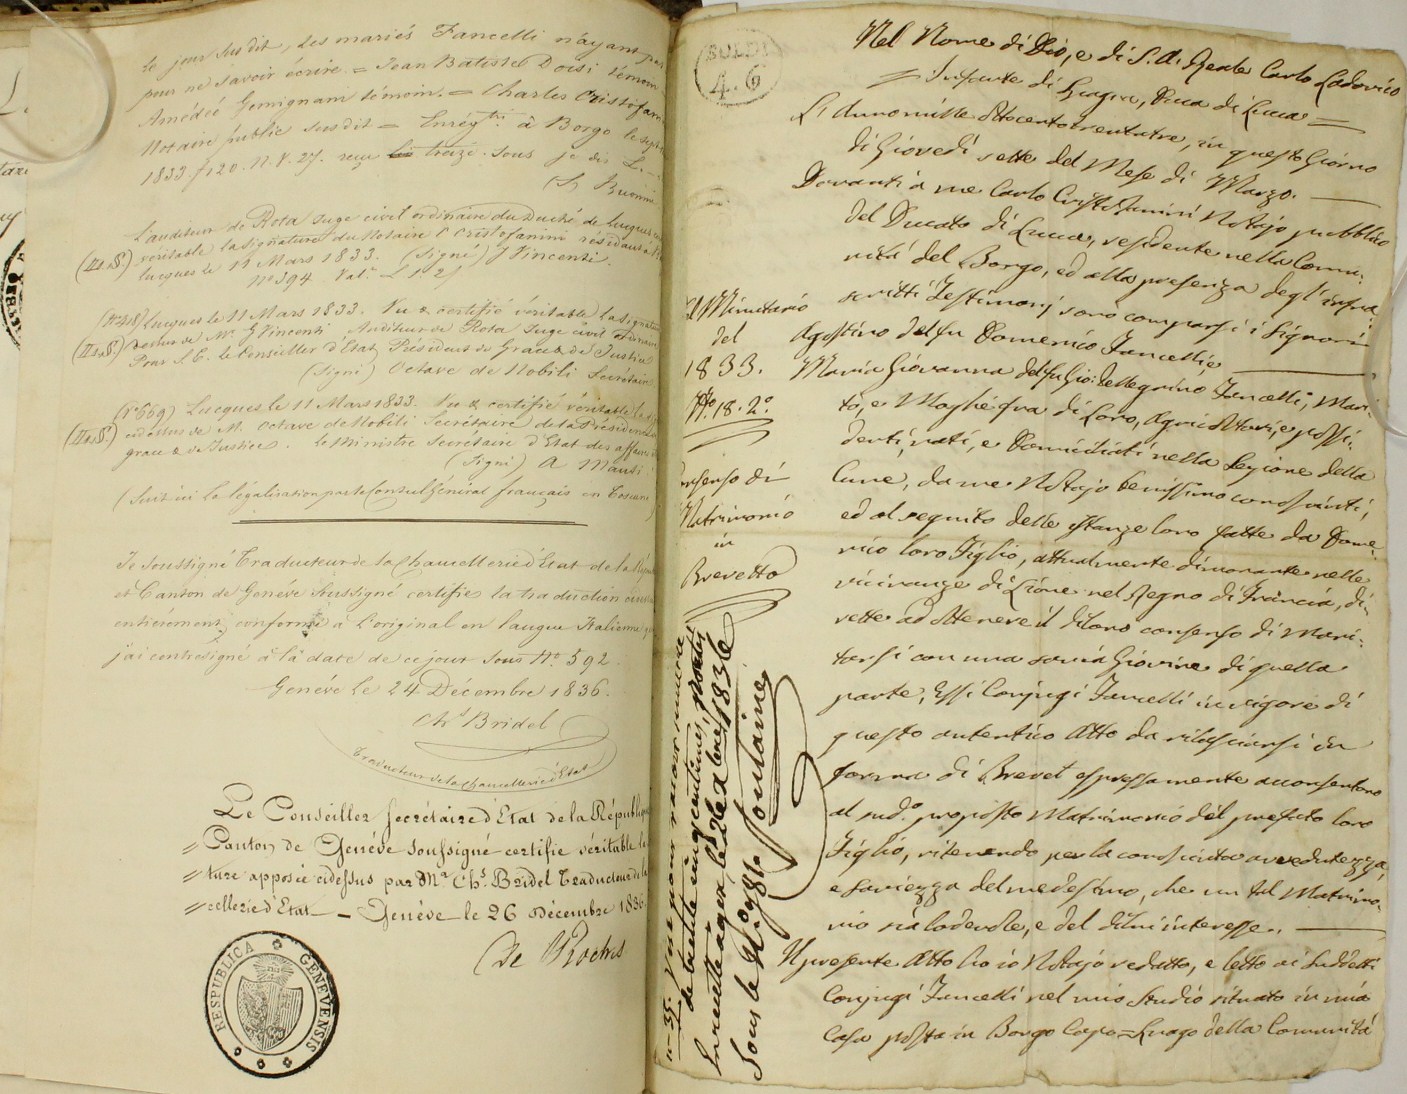 le jour susdit, les mariés Fancelli n'ayant pas
pour ne savoir écrire = Jean Batiste Doisi témoin =
Amédéé Gemignani témoin. = Charles Cristofani
Notaire public susdit = Enrég.tré à Borgo le sept
1833 f.120. N. V. 27. reçu treize sous je dis L
(S. Buonni
L'auditeur de Rota Juge civil ordinaire du Duché de Lucques
(Lieu du S.) véritable la signature du Notaire C Cristofanini résidant à
Lucques le 11 Mars 1833. (Signé) J Vincenti.
N° 394 Val. L 1 2
(N° 418) Lucques le 11 Mars 1833. Vu & certifié véritable la signature
de Mr. J Vincenti Auditeur de Rota Juge civil ordinaire
Pour S. E. le Conseiller d'Etat, Président de Grace & de Justice
(Signé) Octave de Nobili Secrétaire
(N° 669) Lucques le 11 Mars 1833. Vu & certifié véritable la
ci dessus de M. Octave de Nobili Secrétaire de la Présidence
grace & de Justice. le Ministre Secrétaire d'Etat des affaires
(Signé) A Mansi
(Suit ici la légalisation par le Consul Général français en Toscane
Je soussigné Traducteur de la Chancellerie d'Etat de la Répub
et Canton de Genève soussigné certifie la traduction ci
entièrement conforme à l'original en langue Italienne
j'ai contresigné à la date de ce jour sous N° 592.
Genève le 24 Décembre 1836.
Chs Bridel
Traducteur de la Chancellerie d'Etat
Le Conseiller Secrétaire d'Etat de la République
Canton de Genève soussigné certifie véritable la
ture apposée cidessus par Mr. Chs. Bridel Traducteur de la
cellerie d'Etat — Genève le 26 Décembre 1836.
De Roches
RESPUBLICA GENEVENSIS
SOLDI
4. 6
Nel Nome di Dio, e di S. A. Reale Carlo Lodovico
= Infante di Spagna, Duca di Lucca =
L'Anno mille Ottocento trentatre, in questo Giorno
di Giovedì sette del Mese di Marzo.
Davanti a me Carlo Cristofanini Notajo pubblico
del Ducato di Lucca, residente nella Comu-
nità del Borgo, ed alla presenza degl'infra-
scritti Testimonj sono comparsi i Signori
Agostino del fu Domenico Fancelli e
Maria Giovanna del fu Gio: Pellegrino Fancelli, Mari-
to, e Moglie fra di Loro, Agricoltori, e possi-
denti, nati, e Domiciliati nella Sezione della
Cune, da me Notajo benissimo conosciuti,
ed al seguito delle istanze loro fatte da Dome-
nico loro Figlio, attualmente dimorante nelle
vicinanze di Lione nel Regno di Francia, di-
rette ad ottenere il di loro consenso di Mari-
tarsi con una savia Giovine di quella
parte, Essi Conjugi Fancelli in vigore di
questo autentico Atto da rilasciarsi in
forma di Brevet espressamente acconsentono
al sud.o proposto Matrimonio del prefato loro
Figlio, ritenendo per la conosciuta avvedutezza,
e saviezza del medesimo, che un tal Matrimo-
nio sia lodevole, e del di lui interesse.
Il presente Atto ho io Notajo redatto, e letto ai suddetti
Conjugi Fancelli nel mio Studio situato in mia
Casa posta in Borgo Capo=Luogo della Comunità
Al Minutario
del
1833.
N.o 18. 2.o
Consenso di
Matrimonio
in
Brevetto
n-55. Vu pour
Sous le N.o 986